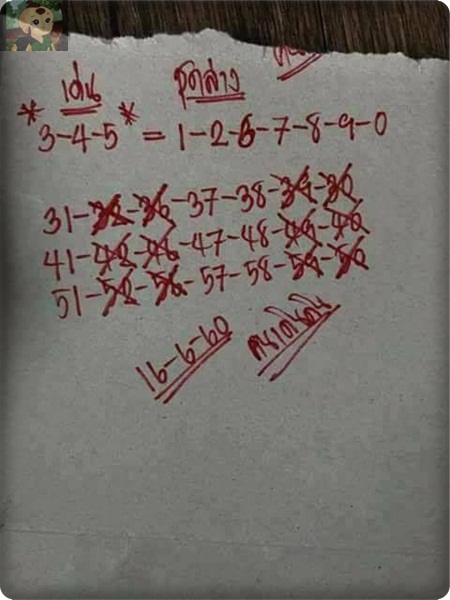 เด่น ชุดล่าง
*3-4-5* = 1-2-6-7-8-9-0
31-32-36-37-38-39-30
41-42-46-47-48-49-40
51-52-56-57-58-59-50
16-6-60
คนเดินดิน